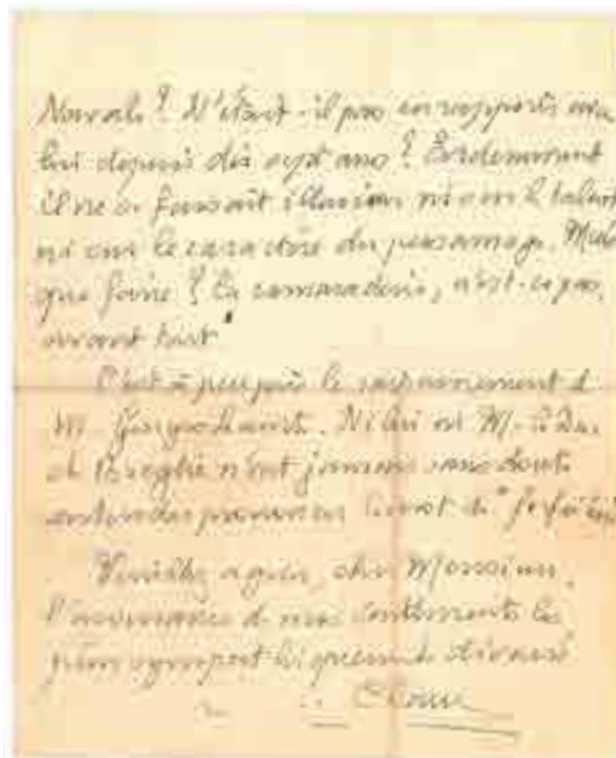 ? N'était-il pas en rapports avec
lui depuis dix sept ans ? Evidemment
il ne se faisait illusion ni sur le talent
ni sur le caractère du personnage. Mais
que faire ? La camaraderie, n'est-ce pas,
avant tout
C'est à peu près le raisonnement de
M. Ni lui ni M. le Duc
de Broglie n'ont jamais sans doute
entendu prononcer le mot de
Veuillez agréer, cher Monsieur,
l'assurance de mes sentiments les
plus sympathiquement dévoués